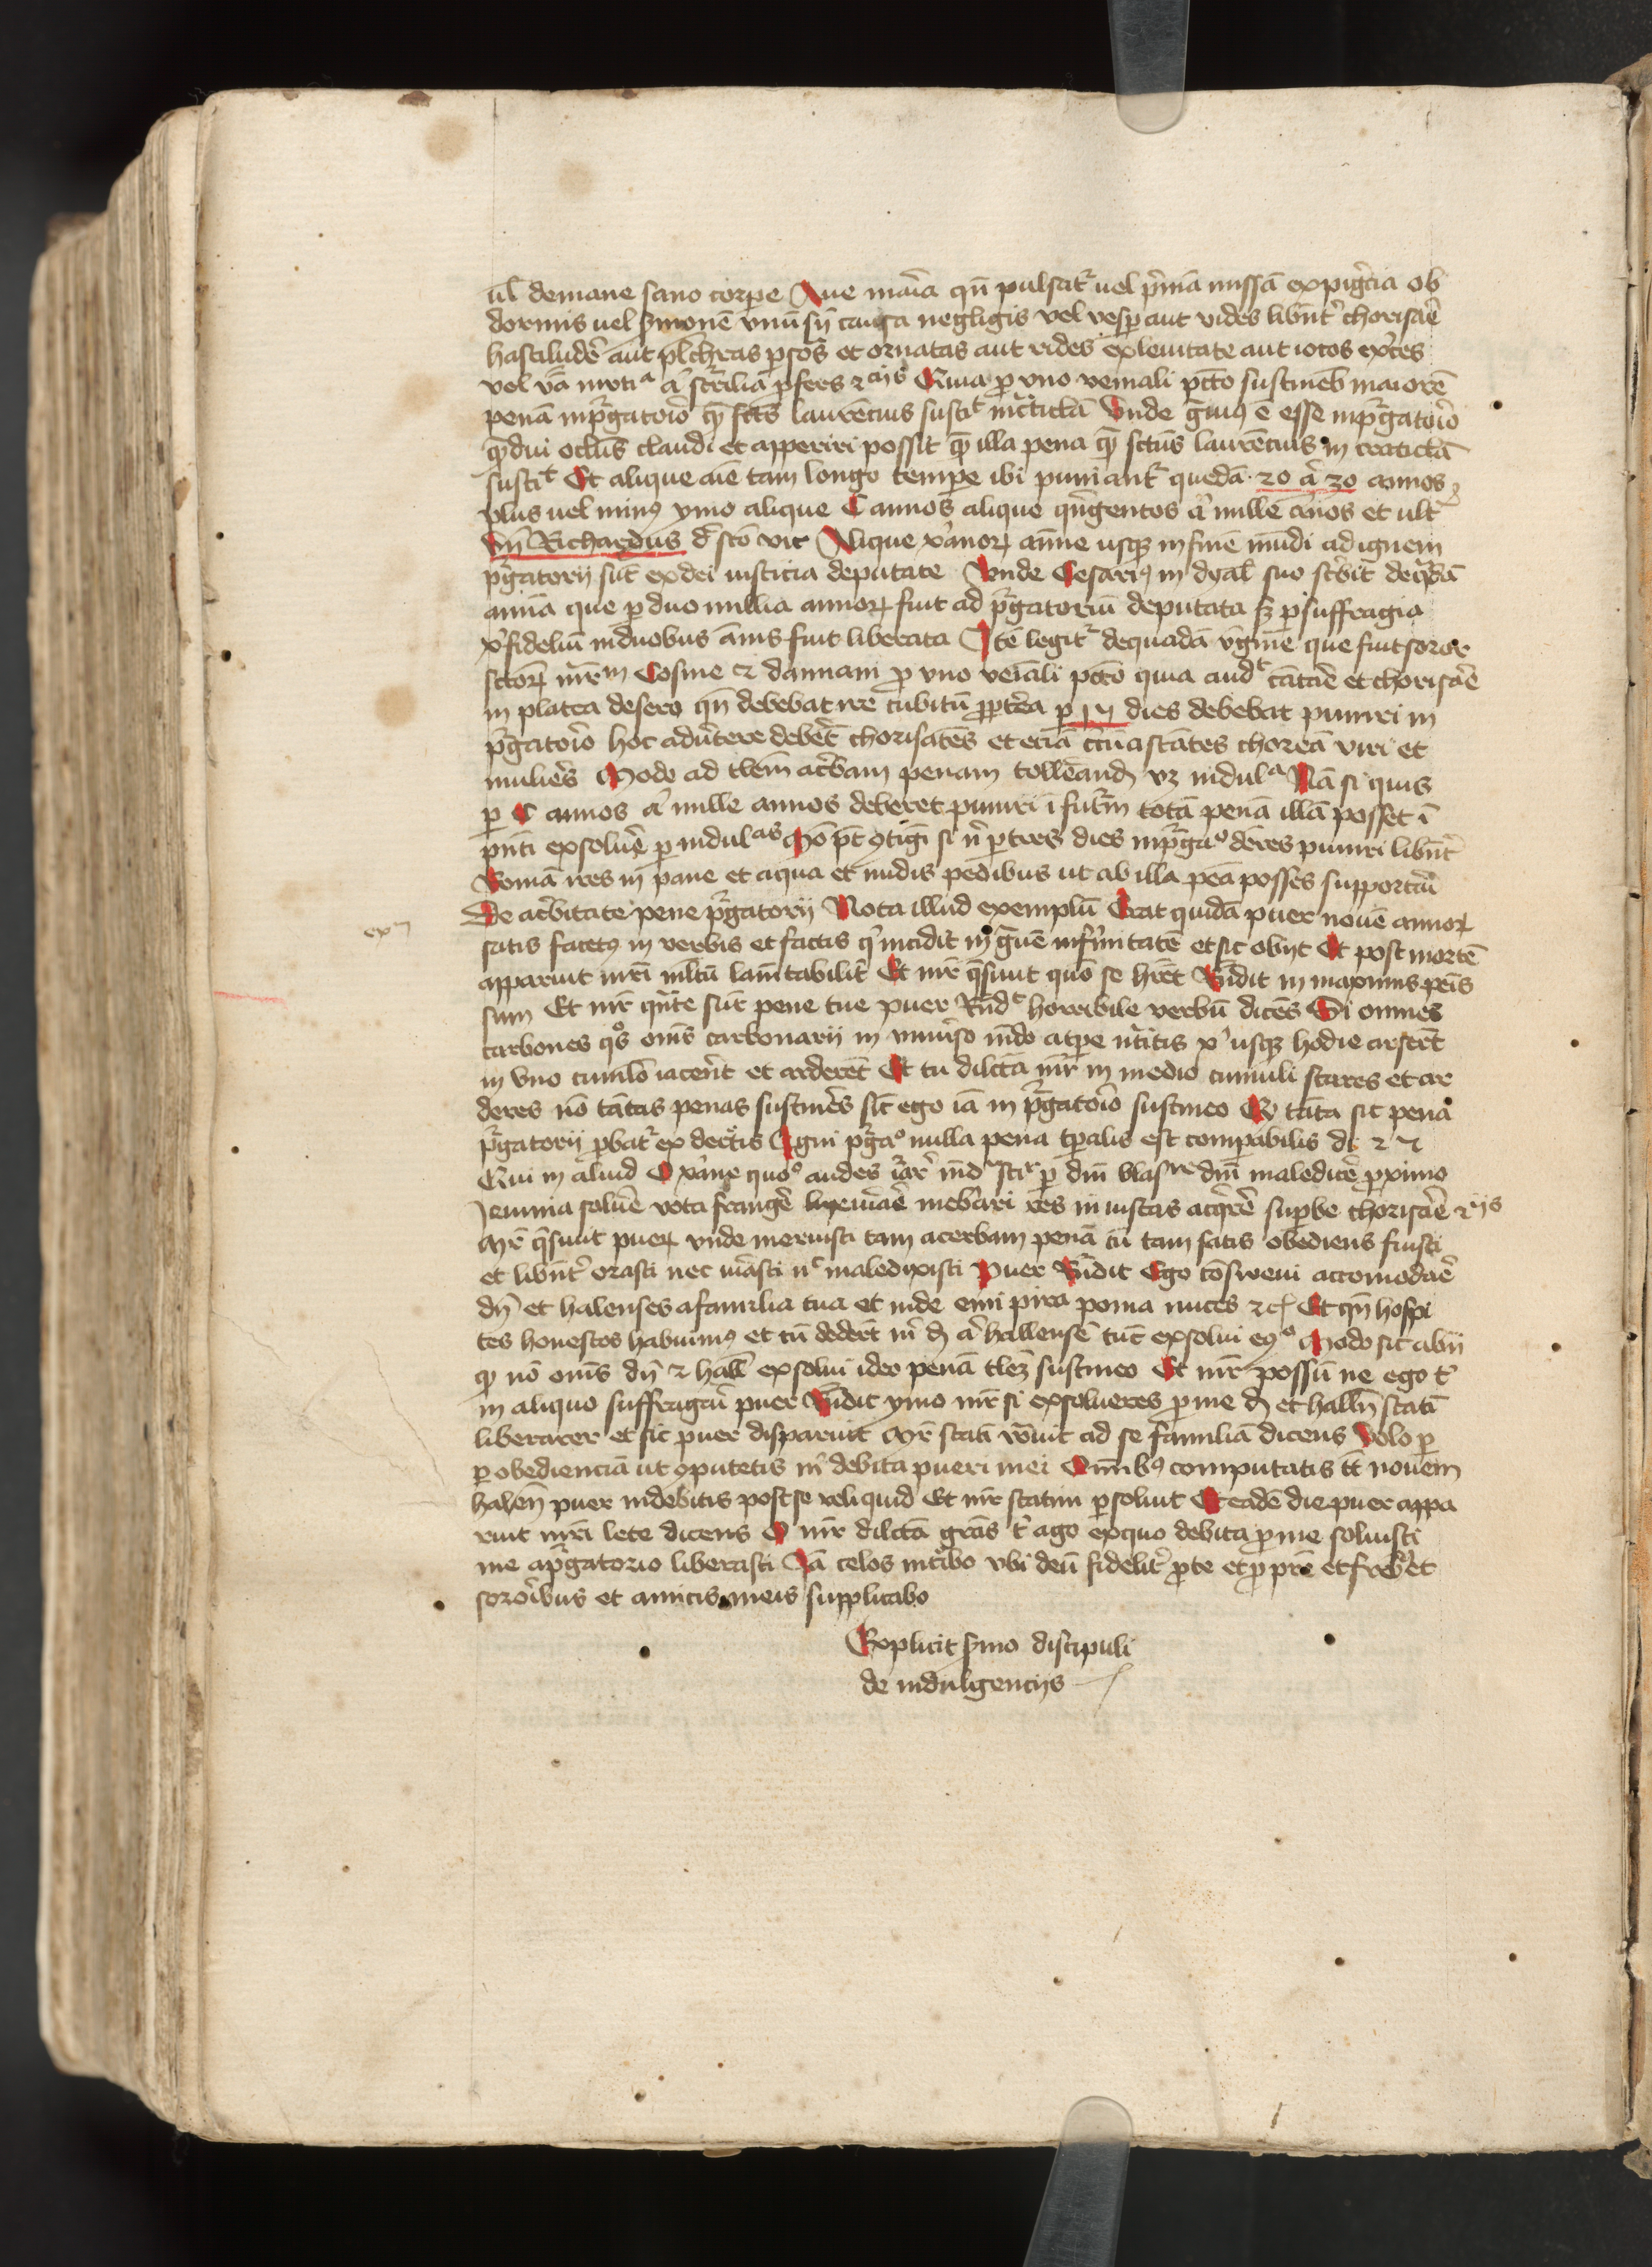 ul demane sano corpe Aue mar̄ia qn̄ pulsat᷑ uel p̄mā missā expig̃cia ob
dormis uel s̃monē vnū sn̄ causa negligis vel vesp aut vides libn̄t̃ chorisar̃e
hastiludẽ aut plchras p̱sōs et ornatas aut rides exleuitate aut iocos ex̃ces
vel vā inutiᵃ a᷑ scr̃ilia p̱fers ⁊ cijs Quia p̱ vno veniali pctō sustineb maiorē
penā inpr̃gatorĩo qꝫ sctūs laurēcius sustiᵗ in cᵃticlā Vnde g̃uiꝰ ē esse inpr̃gatorĩo
qꝫdui oclūs claudi et apperiri possit qꝫ illa pena qꝫ sctūs laurēcius in craticlā
sustiᵗ Et alique aīe tam longo tempe ibi puniant᷑ quedā 20 a᷑ 30 annos
plus uel minꝰ ymo alique C annos alique qn̄gentos a᷑ mille an̄os et ult᷑
vn̄ Richardus d᷑ scō vic Alique xᵃnorꝝ anīe usqꝫ in finē mūdi ad ignem
pr̃gatorij sūt exdei iusticia deputate Vnde Cesariꝰ in dyal suo scb̃it dequadā
animā que p̱ duo millia annorꝝ fuit ad pr̃gatoriū deputata sꝫ p̱suffragia
xp̃fideliū induobus anīs fuit liberata Itē legit᷑ dequadā vg̃ine que fuit soror
sctōrꝝ mr̃m Cosme ⁊ damiani p̱ vno veīali pctō quia audᵗ cātar̃e et chorisar̃e
in platea desero qn̄ debebat ire cubitū pp̱tēa p̱ 15 dies debebat puniri in
pr̃gatorĩo hoc adũtere debēt chorisātes et eciā cc̃ūastātes choreā viri et
muliẽs Modo ad tlem̄ acb̃am penam tollēandꝫ vꝫ indulᵃ Nā si quis
p̱ C annos a᷑ mille annos deberet puniri ī futm̃ totā penā illā posset ī
pn̄ti exsoluẽ p̱ indulᵃˢ Mō pt̄ ꝯtigī si n᷑ p̱tres dies inpr̃gaᵒ dēres puniri libn̄t̃
Romā ires in pane et aqua et nudis pedibus ut ab illa peā posses supportar̃i
De acb̃itate pene pr̃gatorij Nota illud exemplū Erat quidā puer nouē annorꝝ
satis facetꝰ in verbis et factis q̃ incidit in g̃uē infirmitatē et sic obijt Et post mortē
apparuit mr̄i mltū lam̄tabilit᷑ Et mr̄ q̃siuit quō se hr̄et Rn̄dit in maximis peīs
sum Et mr̄ qn̄te sūt pene tue puer Rn̄dᵗ horribile verbū dicēs Si omnes
carbones qᵒs om̄s carbonarij in vniũso mūdo atpe nc̃itis xᵖ usqꝫ hodie arserūt
in vno cumlō iacer̄nt et arderēt Et tu dilctā mr̄ in medio cumuli stares et ar
deres nō tātas penas sustinēs sic̄ ego iā in pr̃gatorĩo sustineo Qꝫ tāta sit pena
pr̃gatorij p̱bat᷑ ex dec̃tis Igni pr̃gaᵒ nulla pena tp̱alis est compabilis di
Qui in aliud O xᵃne quoᵒ audes
Ieiunia soluẽ vota frangẽ inebᵃari res in iustas acq̃rẽ sup̱be chorisar̃e ⁊ cijs
Mr̄ q̃siuit puerꝝ vnde meruisti tam acerbam penā cū tam satis obediens fuisti
et libn̄t̃ orasti nec iurasti nᶜ maledixisti Puer Rn̄dit Ego cōsweui accomodar̃e
dn̄ et halenses afamilia tua et inde emi pira poma nuces ⁊c Et qn̄ hospi
tes honestos habuimꝰ et tū dederūt m᷑ d a᷑ hallensē tūc exsolui eqᵒ Modo sic abij
qꝫ nō om̄s dn̄ ⁊ hall exsolui ideo penā tlēꝫ sustineo Et mr̄ possū ne ego t᷑
in aliquo suffragar̃i puer Rn̄dit ymo mr̄ si exsolueres p̱ me d et halln̄ statī
liberarer et sic puer disparuit Mr̄ statī vōuit ad se familiā dicens Volo p̱
p̱ obedienciā ut ꝯputetis m᷑ debita pueri mei Om̄ibꝰ computatis tn̄ nouem
halen̄ puer indebitis postse reliquid Et mr̄ statim p̱soluit Et eadē die puer appa
ruit mr̄i lete dicens O mr̄ dilctā grās t᷑ ago exquo debita p̱ me soluisti
me apr̃gatorio liberasti Iā celos intᵃbo vbi deū fidelit᷑ p̱te et p̱ pr̄e et frib et
sororĩbus et amicis meis supplicabo
Explicit s̃mo discipuli
de indulgencijs
exᵐ